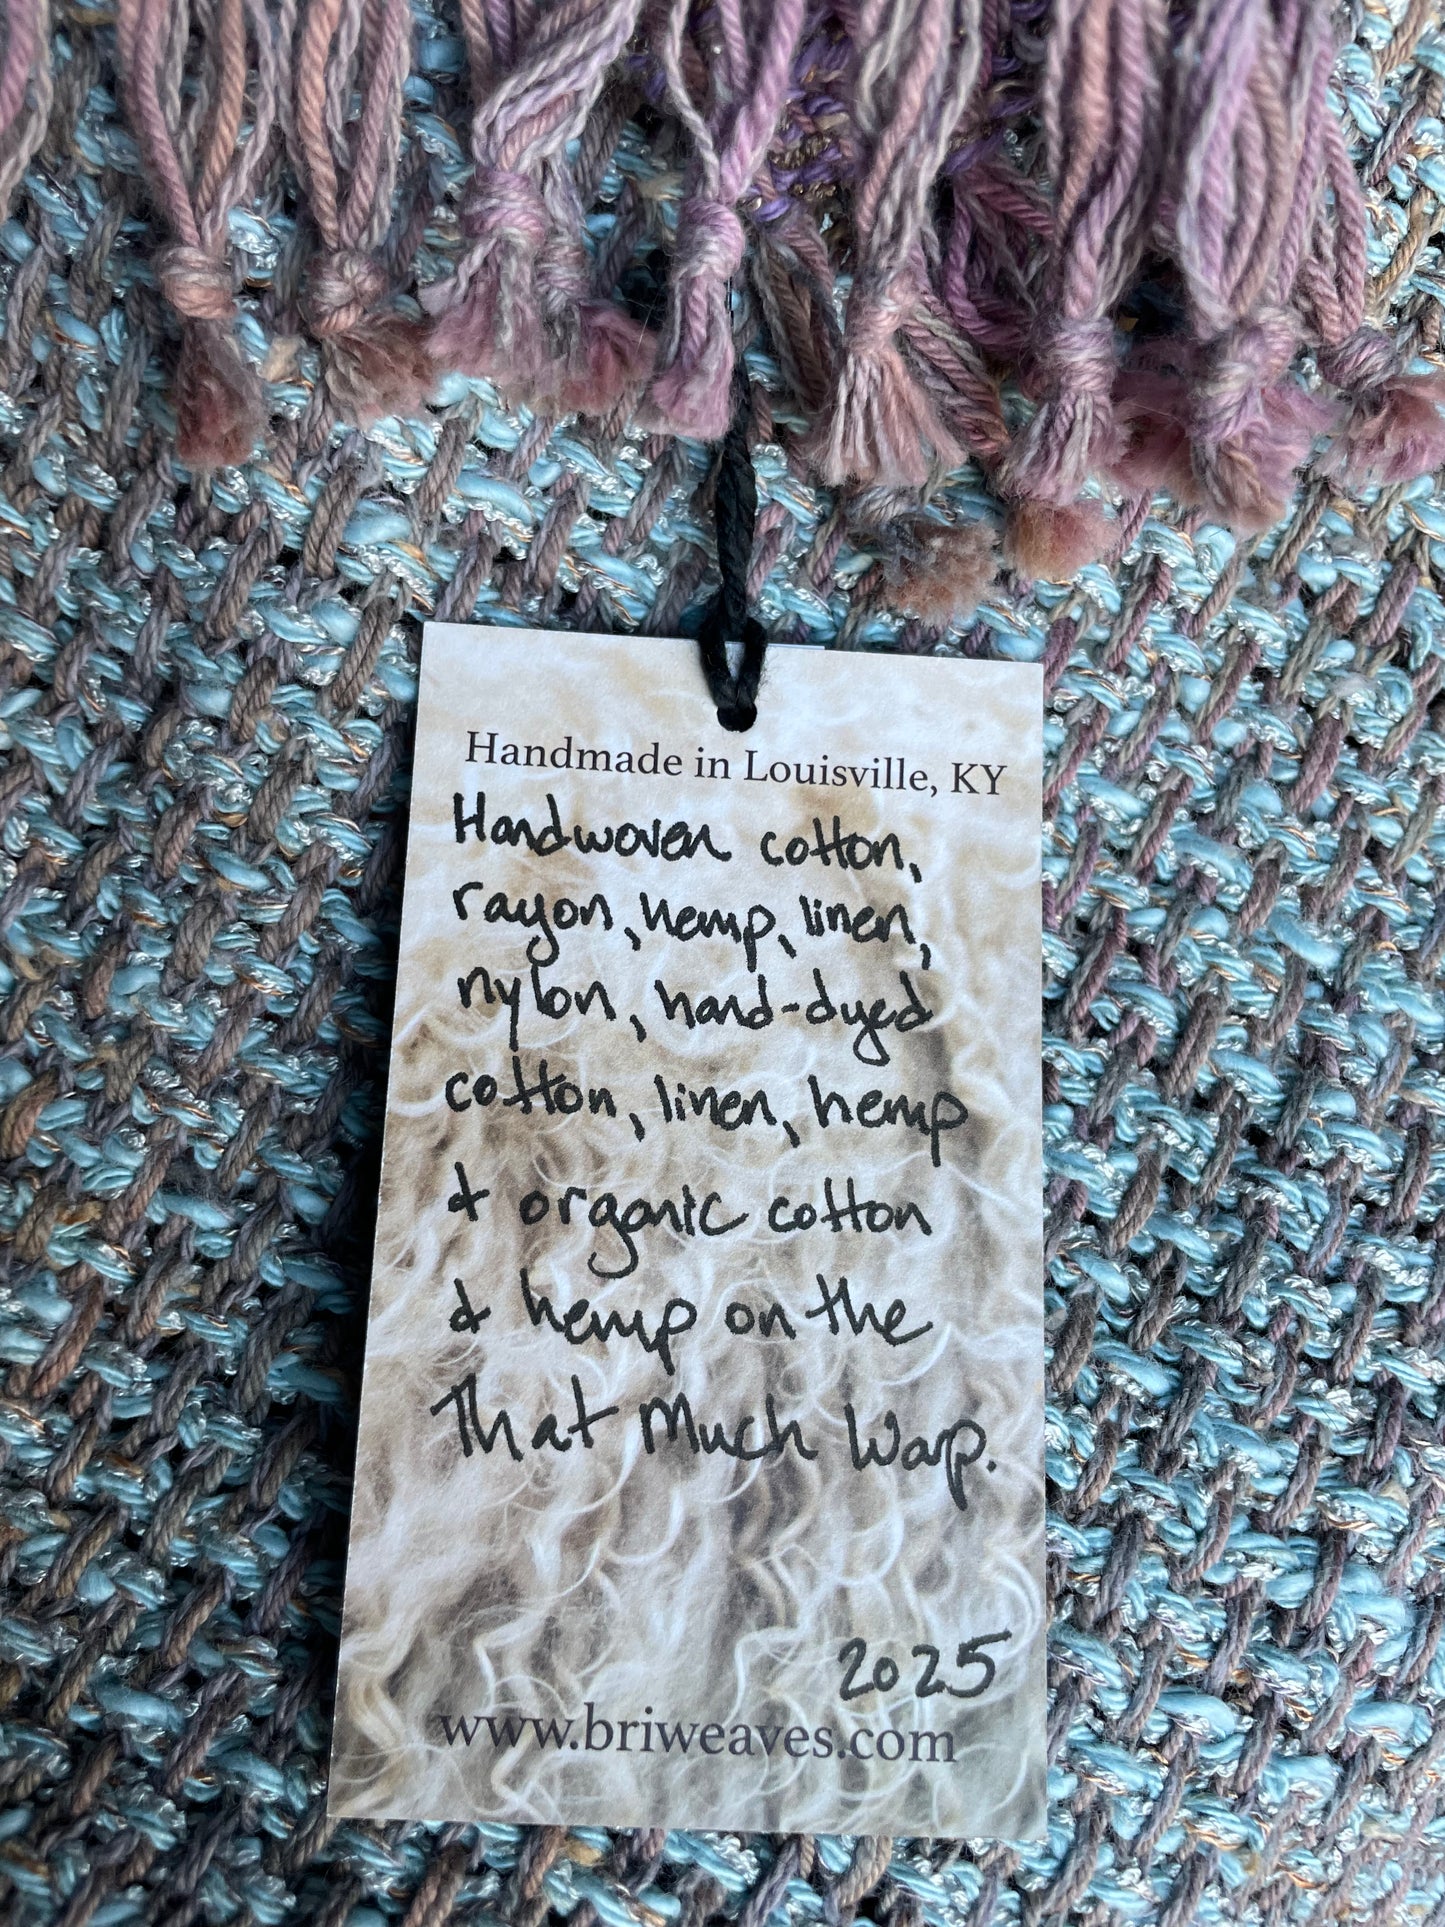 Handmade in Louisville, KY
Handwoven cotton,
rayon, hemp, linen,
nylon, hand-dyed
cotton, linen, hemp
& organic cotton
& hemp on the
That Much Warp.
2025
www.briweaves.com